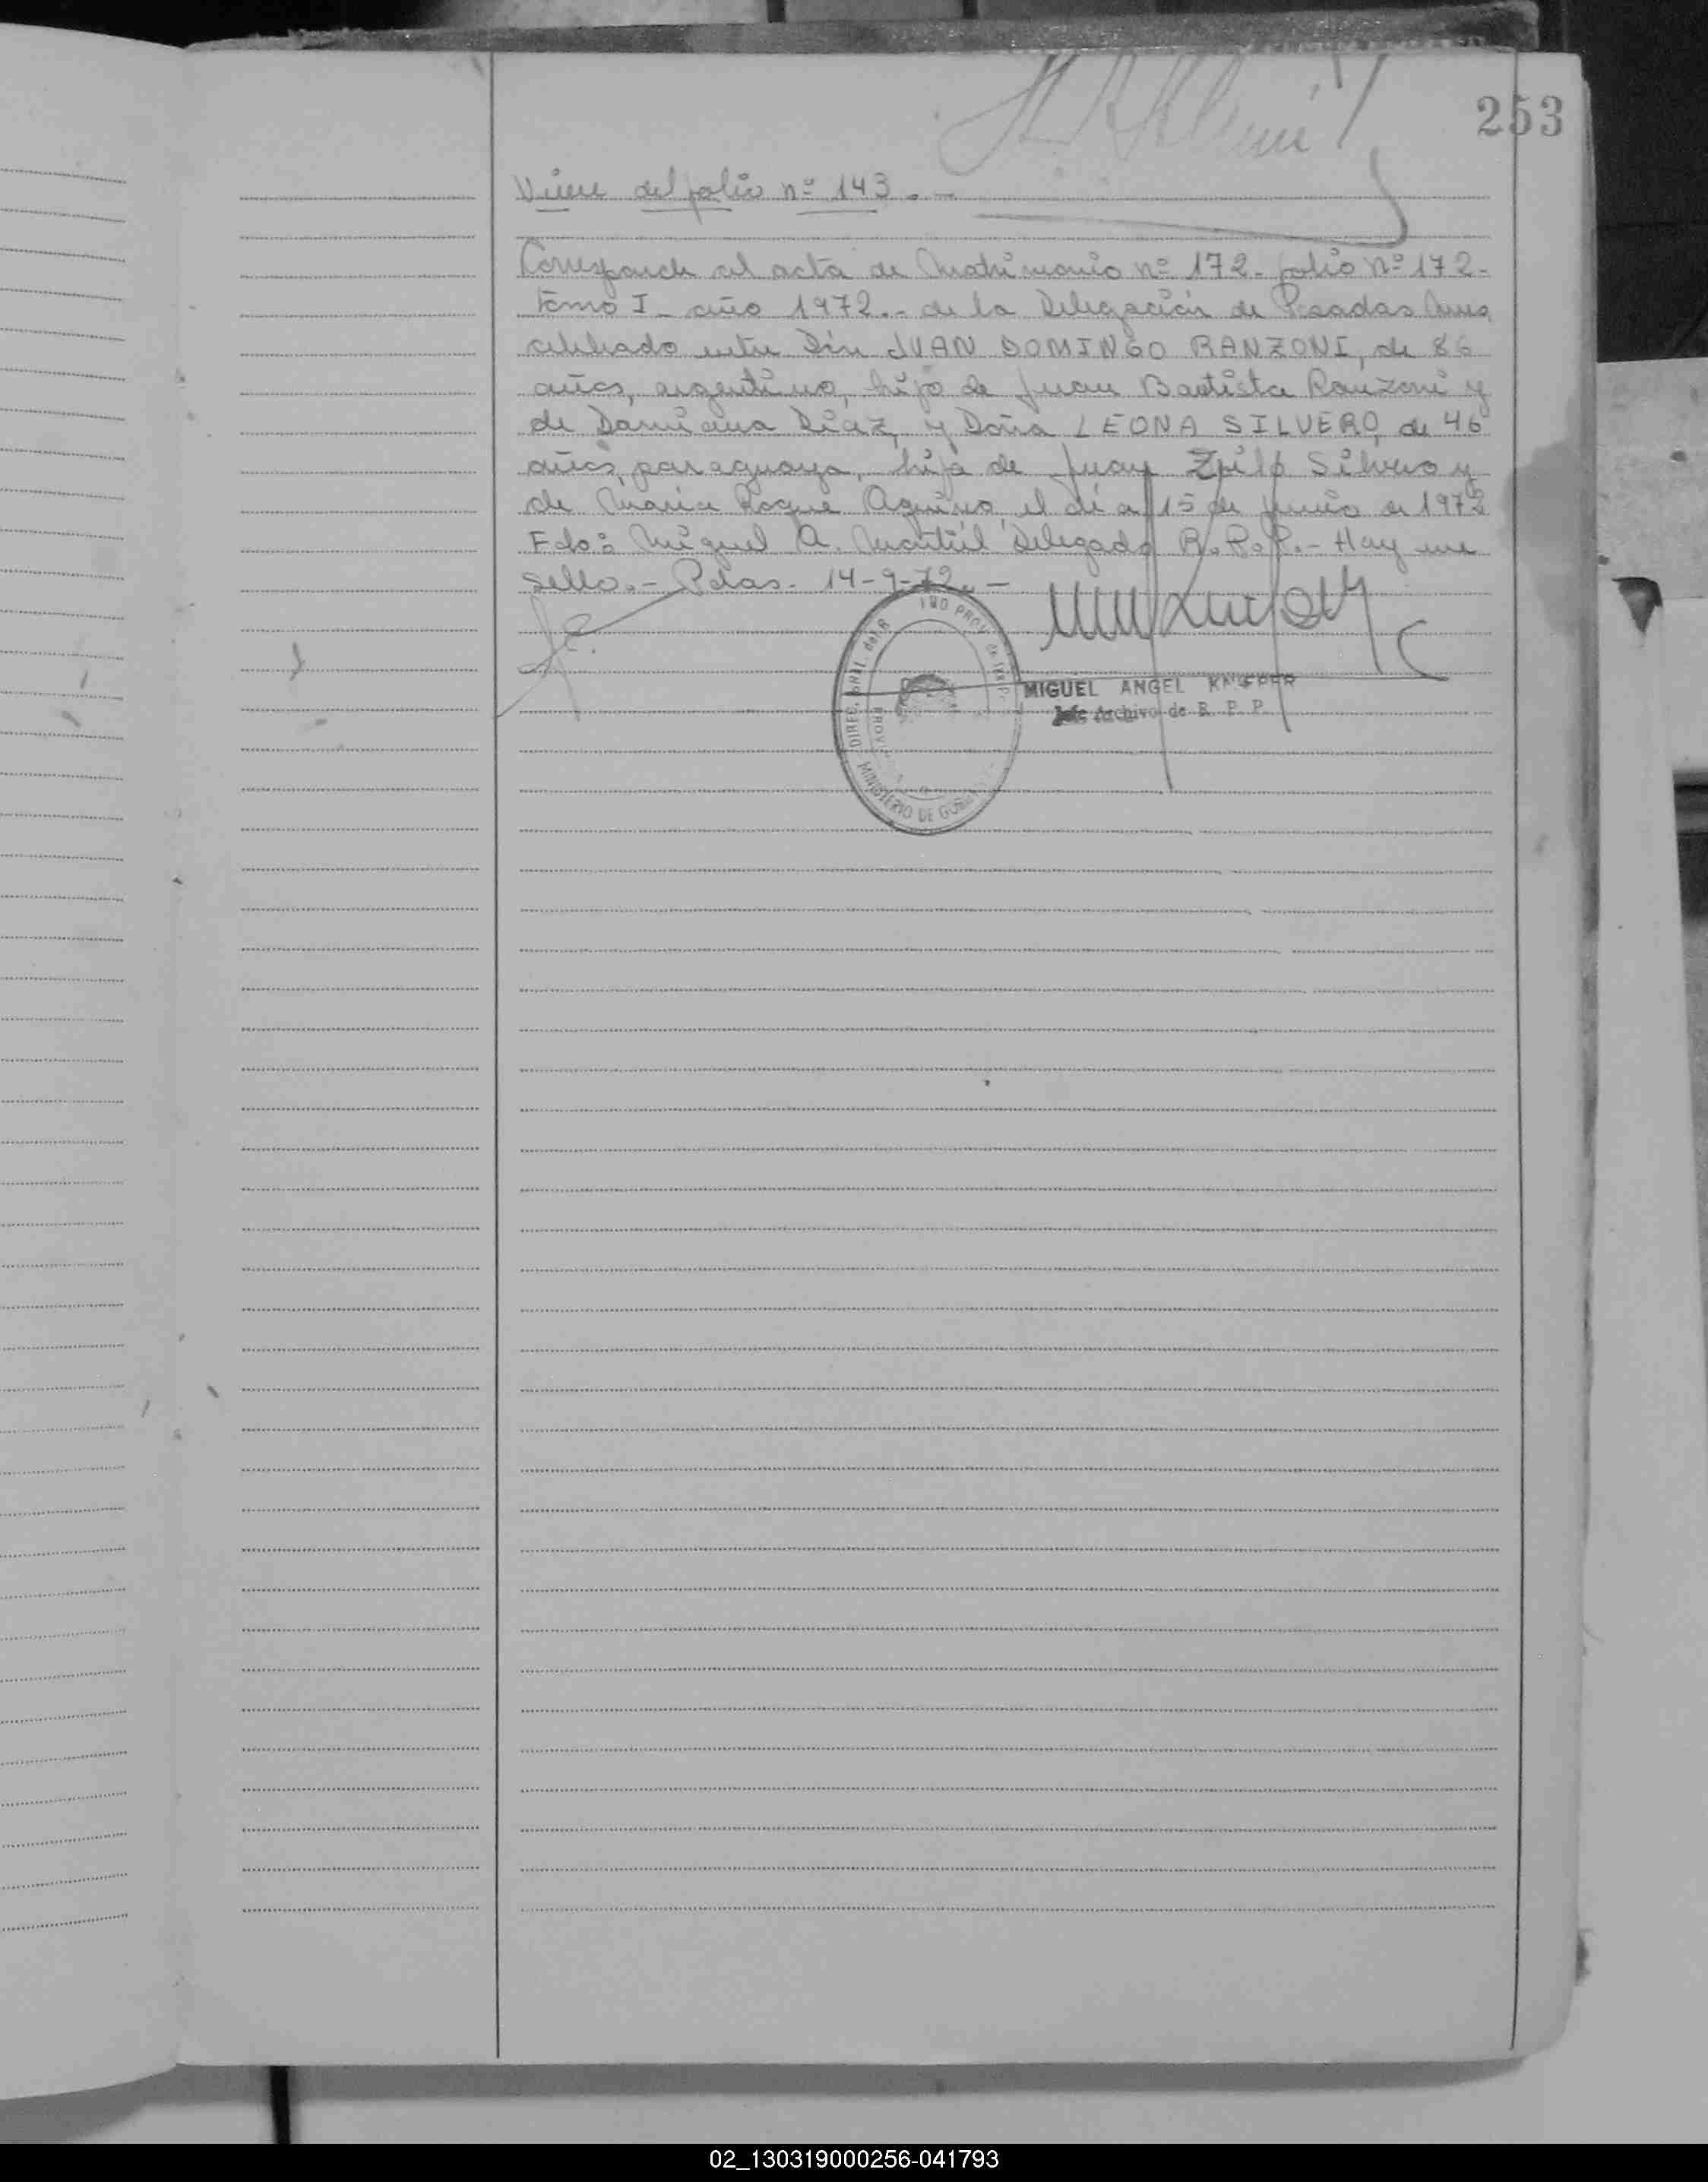 253
Viene del folio nº 143.-
Corresponde al acta de Matrimonio nº 172- folio nº 172-
tomo I- año 1972.- de la Delegación de Posadas Mnes,
celebrado entre Don JUAN DOMINGO RANZONI, de 86
años, argentino, hijo de Juan Bautista Ranzoni y
de Damiana Diaz, y Doña LEONA SILVERO, de 46
años, paraguaya, hija de Juan Silvero y
de Maria Roque Aquino, el día 15 de Junio de 1972
Fdo: Miguel A. Delegado R.P.P.- Hay un
sello.- Pdas. 14-9-72.-
DIREC. GRAL. del R PROV. de las P.
MINISTERIO DE
MIGUEL ANGEL
Jefe Archivo de R. P. P.
02_130319000256-041793